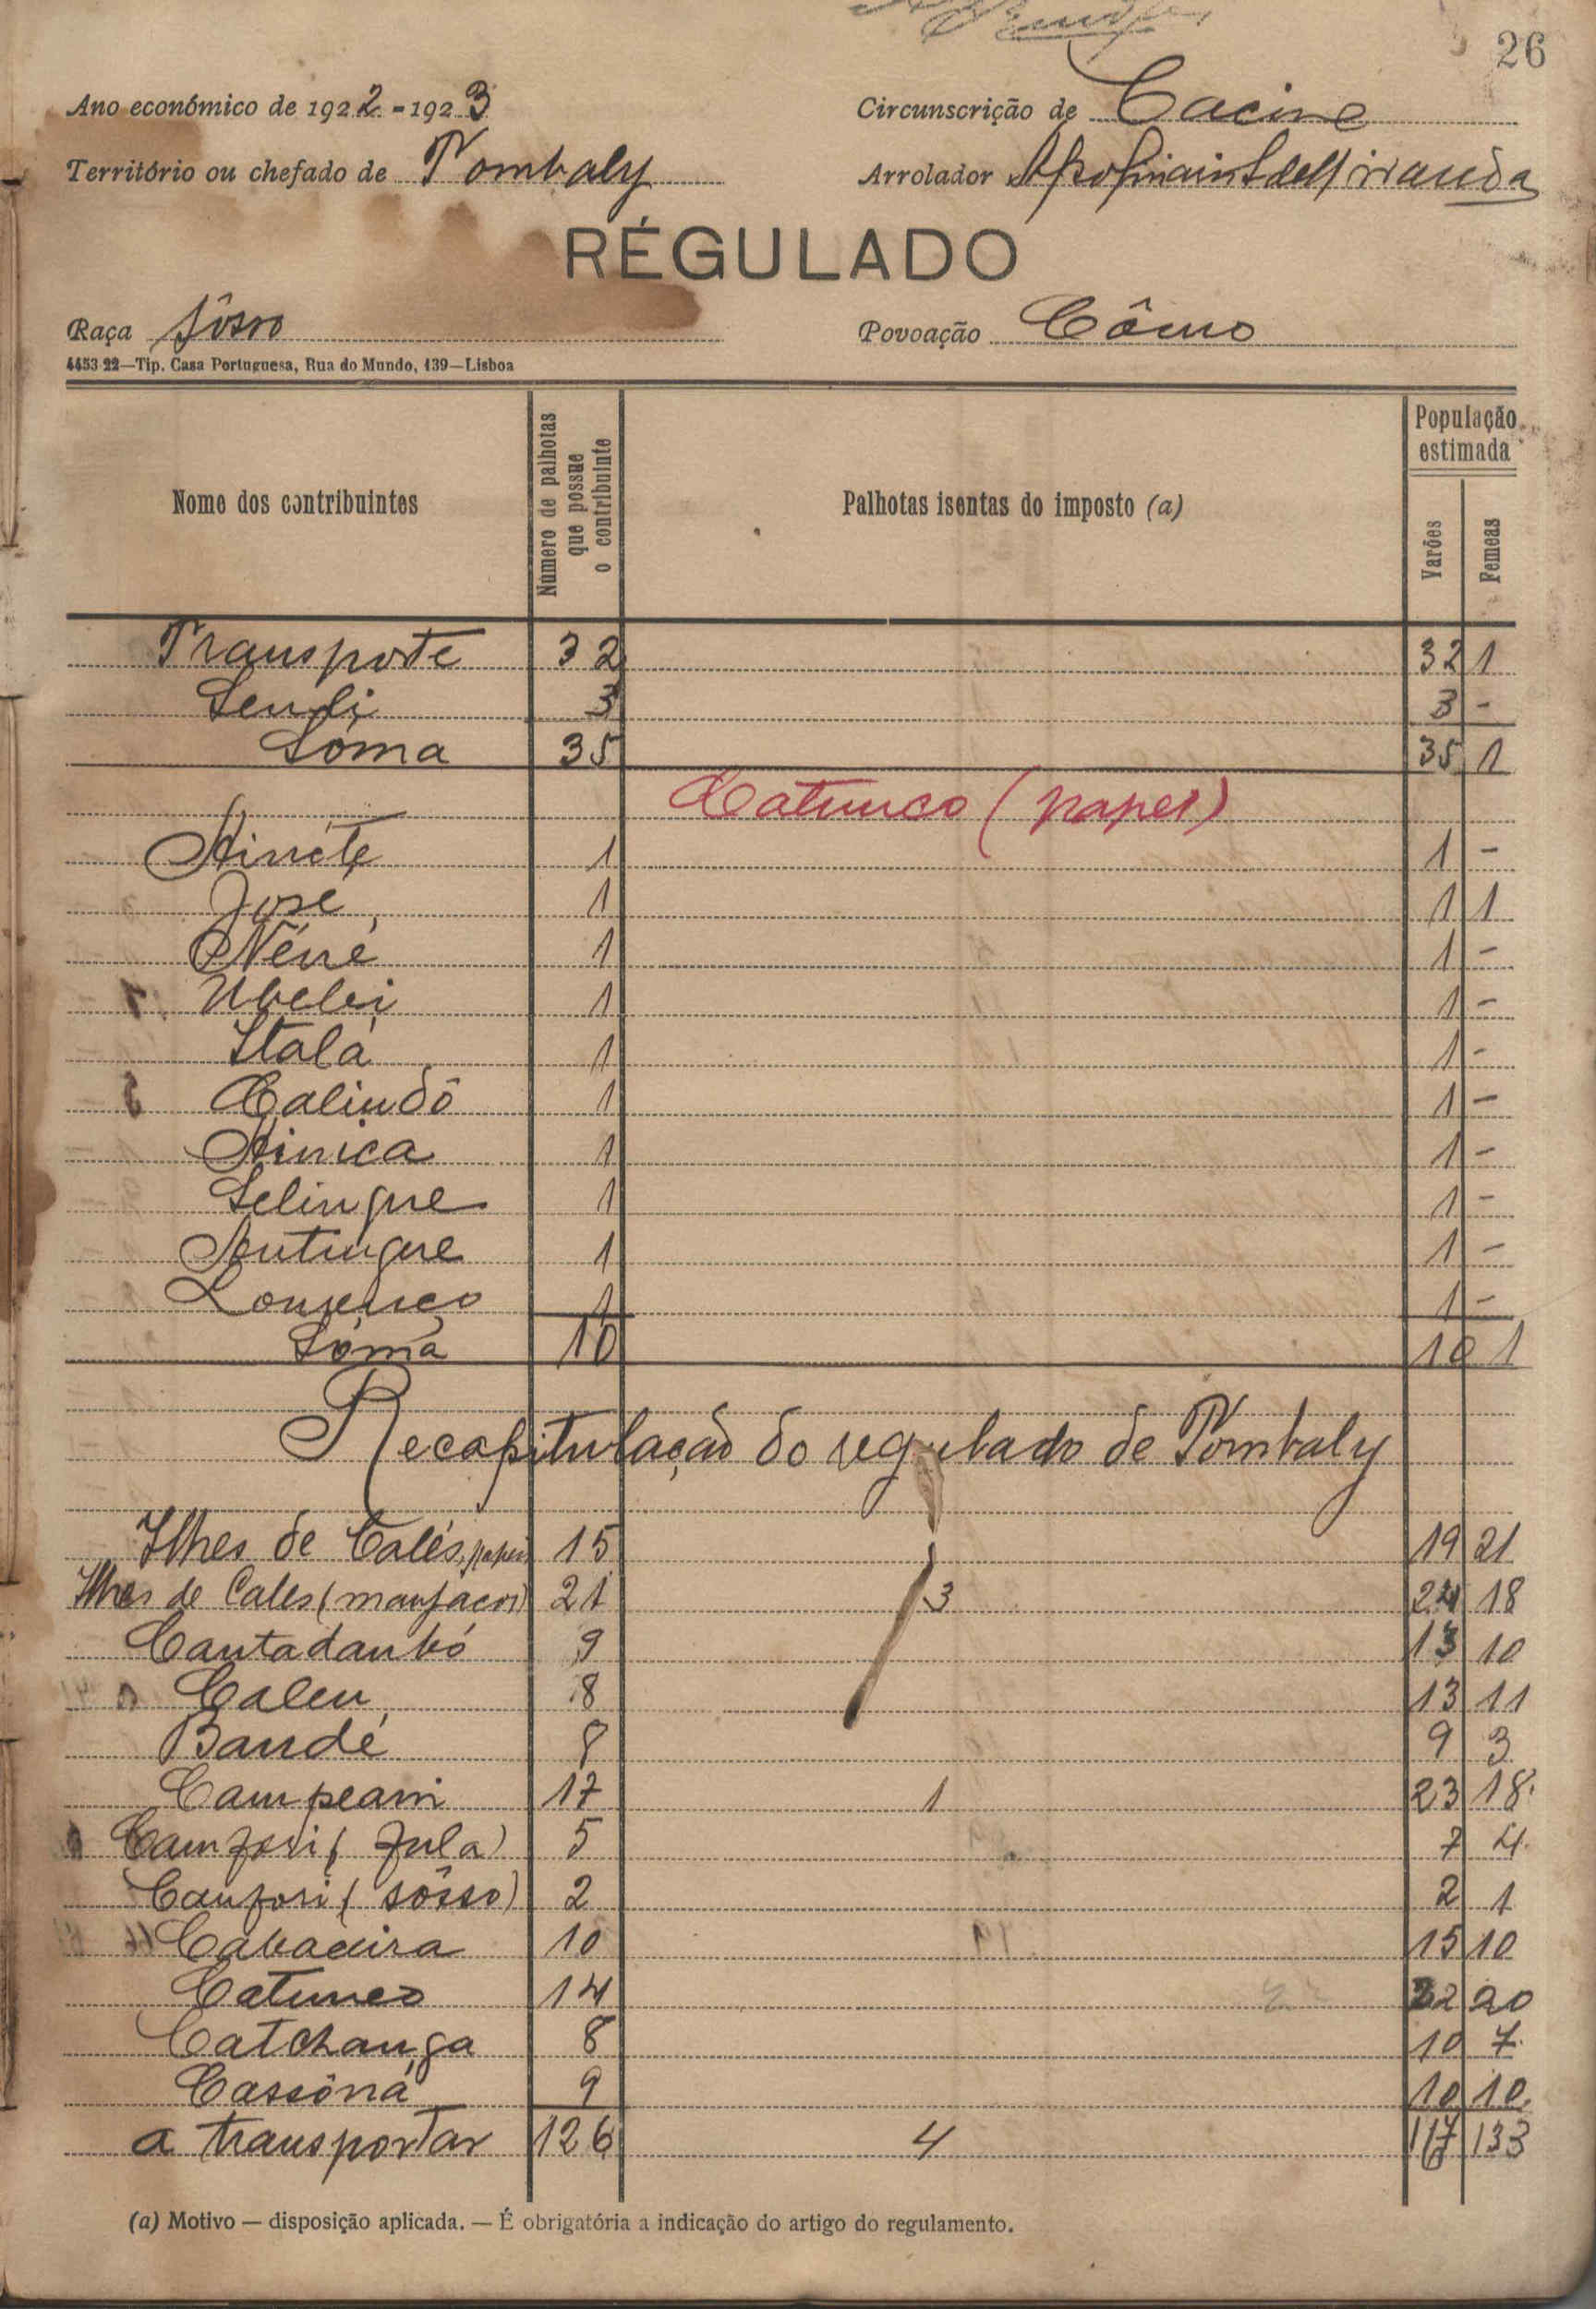 26
Ano económico de 1922-1923 Circunscrição de Cacine
Território ou chefado de Tombaly Arrolador
RÉGULADO
Raça Sôsso Povoação Cômo
4453-22—Tip. Casa Portuguesa, Rua do Mundo, 139—Lisboa
Nome dos contribuintes Número de palhotas que possue o contribuinte Palhotas isentas do imposto (a) População estimada Varões Femeas
Transporte 32 32 1
3 3 -
Sôma 35 35 1
Catunco (papel)
1 1 -
José 1 1 1
Néné 1 1 -
1 1 -
Italá 1 1 -
Calindô 1 1 -
1 1 -
Selingue 1 1 -
1 1 -
Lourenço 1 1 -
Sôma 10 10 1
Recapitulação do regulado de Tombaly
Ilhes de Calés, papeis 15 19 21
Ilhes de Cales (manjacos) 21 3 24 18
9 13 10
Caleu 8 13 11
Bandé 8 9 3
Campeani 17 1 23 18
Camfori (fula) 5 7 4
Canfori (sôsso) 2 2 1
Cabaceira 10 15 10
Catunco 14 22 20
Catchanga 8 10 7
Cassôná 9 10 10
a transportar 126 4 167 133
(a) Motivo — disposição aplicada. — É obrigatória a indicação do artigo do regulamento.